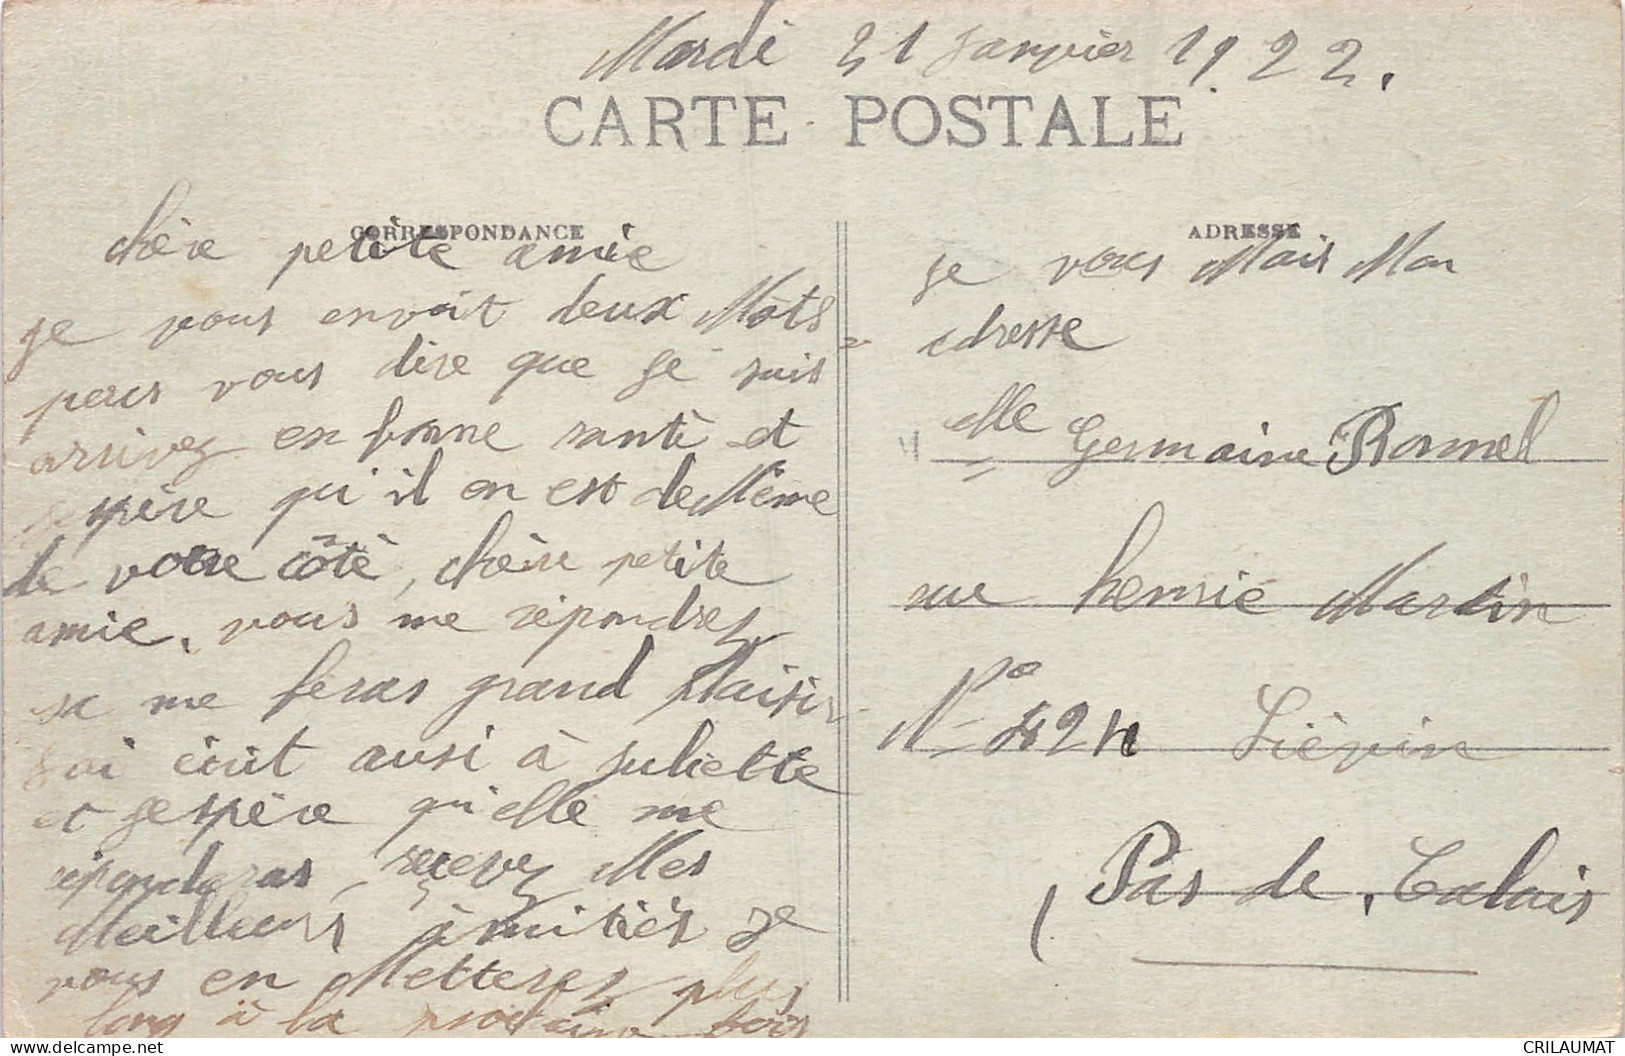 Mardi 31 janvier 1922.
CARTE POSTALE
CORRESPONDANCE
chère petite amie
je vous envoit deux Mots
pour vous dire que je suis
arrivez en bonne santé et
espère qu'il en est de Même
de votre côté, chère petite
amie, vous me répondrez
sa me feras grand plaisir
j'ai écrit aussi à juliette
et j'espère qu'elle me
réponderas, recevez Mes
Meilleurs àmitiés je
vous en Metterez plus
long à la prochaine fois
ADRESSE
je vous Mais Mon
adresse
Mlle Germaine Rommel
rue henrie Martin
No Liévin
Pas de Calais
CRILAUMAT